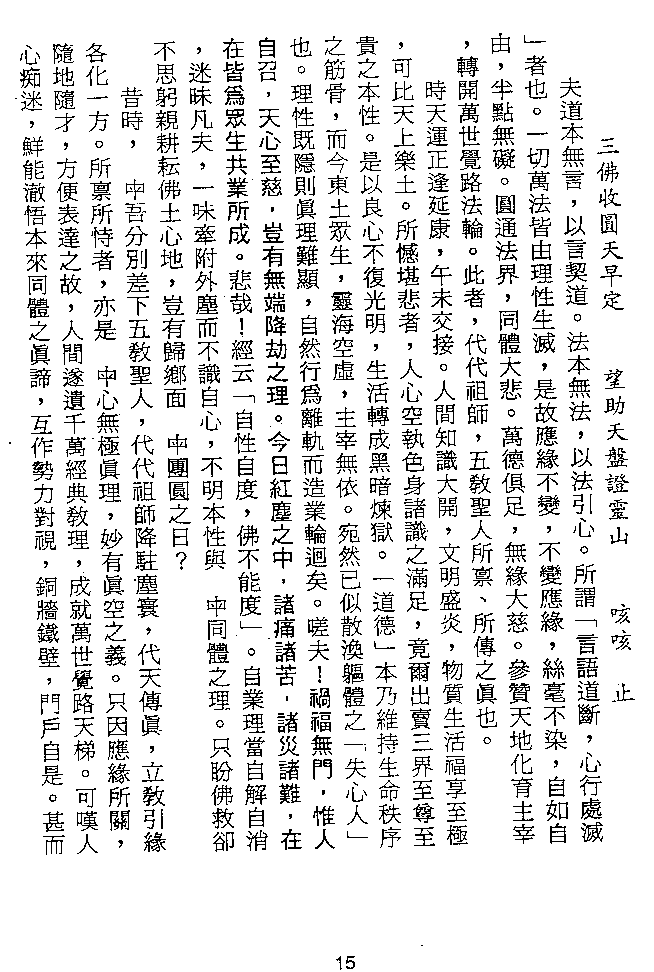 三佛收圓天早定　望助天盤證靈山　咳咳　止
夫道本無言，以言契道。法本無法，以法引心。所謂「言語道斷，心行處滅
」者也。一切萬法皆由理性生滅，是故應緣不變，不變應緣，絲毫不染，自如自
由，半點無礙。圓通法界，同體大悲。萬德俱足，無緣大慈。參贊天地化育主宰
，轉開萬世覺路法輪。此者，代代祖師，五教聖人所稟、所傳之眞也。
時天運正逢延康，午未交接。人間知識大開，文明盛炎，物質生活福享至極
，可比天上樂土。所憾堪悲者，人心空執色身諸識之滿足，竟爾出賣三界至尊至
貴之本性。是以良心不復光明，生活轉成黑暗煉獄。「道德」本乃維持生命秩序
之筋骨，而今東土眾生，靈海空虛，主宰無依。宛然已似散渙軀體之「失心人」
也。理性既隱則眞理難顯，自然行爲離軌而造業輪迴矣。嗟夫！禍福無門，惟人
自召，天心至慈，豈有無端降劫之理。今日紅塵之中，諸痛諸苦，諸災諸難，在
在皆爲眾生共業所成。悲哉！經云「自性自度，佛不能度」。自業理當自解自消
，迷昧凡夫，一味牽附外塵而不識自心，不明本性與　中同體之理。只盼佛救卻
不思躬親耕耘佛土心地，豈有歸鄉面　中團圓之日？
昔時，　中吾分別差下五敎聖人，代代祖師降駐塵寰，代天傳眞，立敎引緣
各化一方。所禀所恃者，亦是　中心無極眞理，妙有眞空之義。只因應緣所關，
隨地隨才，方便表達之故，人間遂遺千萬經典敎理，成就萬世覺路天梯。可嘆人
心痴迷，鮮能澈悟本來同體之眞諦，互作勢力對視，銅牆鐵壁，門戶自是。甚而
15